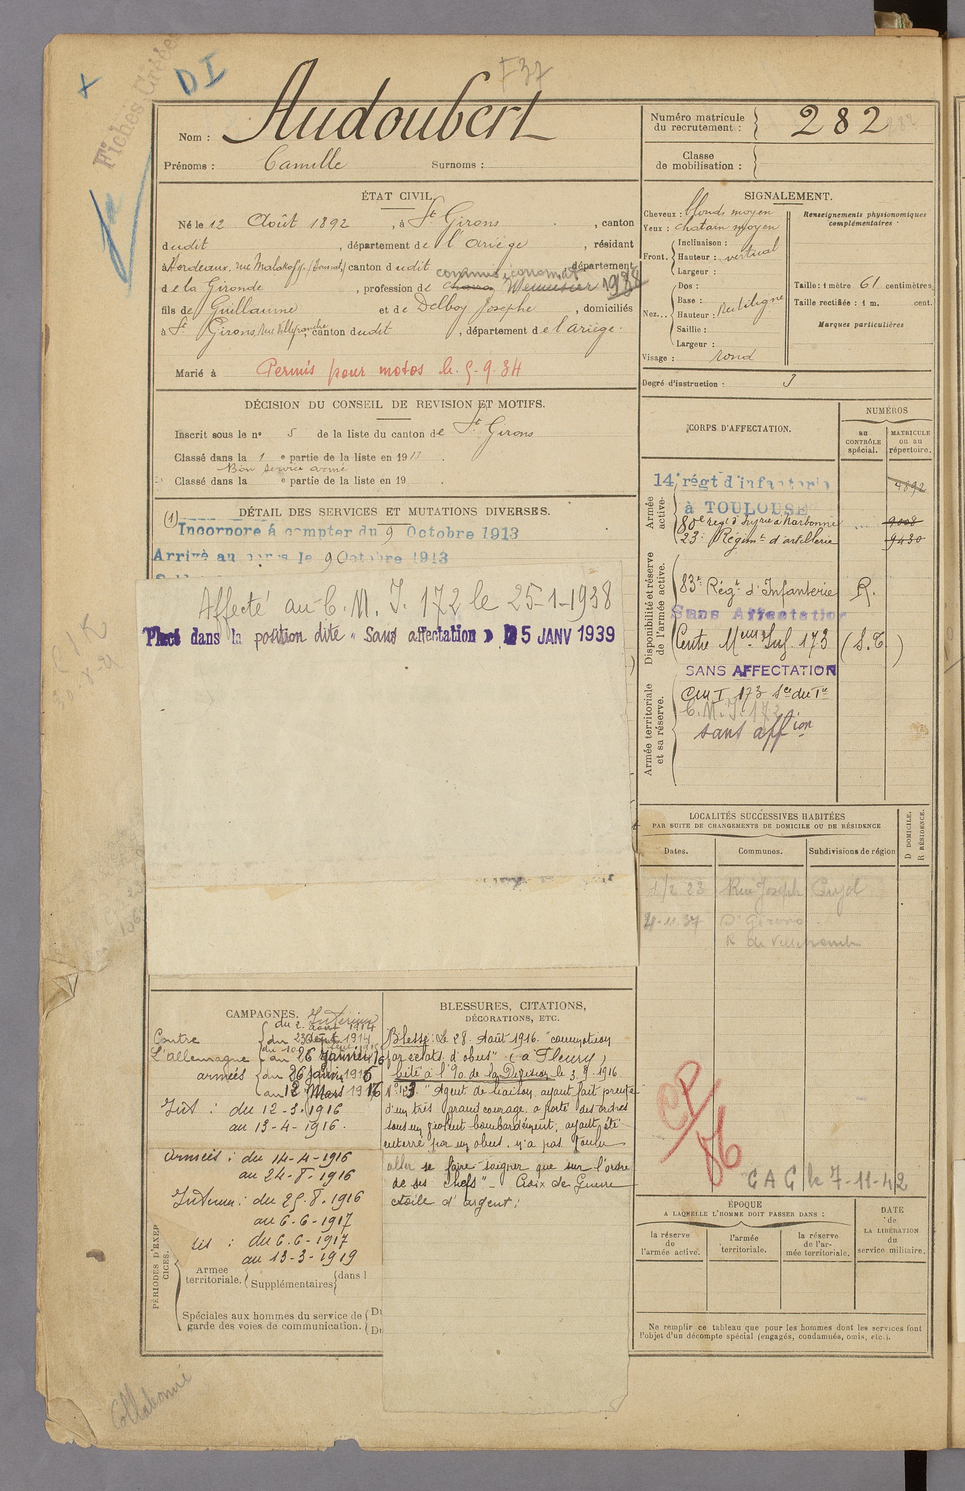 Fiches
D I
F37
Nom : Audoubert
Prénoms : Camille Surnoms :
Numéro matricule du recrutement : 282
Classe de mobilisation :
ÉTAT CIVIL.
Né le 12 Août 1892, à St Girons, canton
dudit, département de l'ariège, résidant
à Bordeaux, rue Malakoff, canton dudit département
de la Gironde, profession de Menuisier
fils de Guillaume et de Delboy Josephe, domiciliés
à St Girons, rue Villefranche, canton dudit, département de l'ariège.
Marié à Permis pour motos le 5-9-34
SIGNALEMENT.
Cheveux : blonds moyen
Yeux : chatain moyen
Front. Inclinaison :
Hauteur : vertical
Largeur :
Nez... Dos :
Base :
Hauteur : Rectiligne
Saillie :
Largeur :
Visage : rond
Renseignements physionomiques complémentaires :
Taille : 1 mètre 61 centimètres
Taille rectifiée : 1 m. cent.
Marques particulières
Degré d'instruction : 3
DÉCISION DU CONSEIL DE REVISION ET MOTIFS.
Inscrit sous le n° 5 de la liste du canton de St Girons
Classé dans la 1 e partie de la liste en 19
Bon service armé
Classé dans la e partie de la liste en 19
DÉTAIL DES SERVICES ET MUTATIONS DIVERSES.
(1) Incorporé à compter du 9 Octobre 1913
Arrivé au corps le 9 Octobre 1913
Affecté au C. M. I. 172 le 25-1-1938
Placé dans la position dite « Sans affectation » 5 JANV 1939
CORPS D'AFFECTATION.
NUMÉROS
au CONTRÔLE spécial.
MATRICULE ou au répertoire.
Armée active.
14e régt d'infanterie
à TOULOUSE
80e régt d'Infrie à Narbonne
23e Régimt d'artillerie 9430
Disponibilité et réserve de l'armée active.
83e Régt d'Infanterie R.
Sans Affectation
Centre Inf. 173 (S.T.)
SANS AFFECTATION
Armée territoriale et sa réserve.
CM I 173
C. M. I. 172
sans affion
LOCALITÉS SUCCESSIVES HABITÉES
PAR SUITE DE CHANGEMENTS DE DOMICILE OU DE RÉSIDENCE
Dates. Communes. Subdivisions de région
D DOMICILE. R RÉSIDENCE.
Rue Joseph Pujol
St Girons
R de Villefranche
CAMPAGNES.
Contre
L'allemagne
armées
Int : du 12-3-1916
au 13-4-1916.
Armées : du 14-4-1916
au 24-8-1916
Intérieur : du 25-8-1916
au 6-6-1917
du 6-6-1917
au 13-3-1919
BLESSURES, CITATIONS,
DÉCORATIONS, ETC.
Blessé : Le 28 Août 1916. "commotion
par éclats d'obus" (à Fleury)
Cité à l'O. de la Division le 3.9.1916.
"Agent de liaison, ayant fait preuve
d'un très grand courage, a porté des ordres
sous un violent bombardement, ayant été
enterré par un obus, n'a pas voulu
aller se faire soigner que sur l'ordre
de ses chefs" - Croix de Guerre
étoile d'argent.
PÉRIODES D'EXERCICES.
Armée territoriale. Supplémentaires dans l
Spéciales aux hommes du service de garde des voies de communication.
CP
86
C A G le 7-11-42
ÉPOQUE
A LAQUELLE L'HOMME DOIT PASSER DANS :
la réserve de l'armée active.
l'armée territoriale.
la réserve de l'armée territoriale.
DATE de LA LIBÉRATION du service militaire.
Ne remplir ce tableau que pour les hommes dont les services font
l'objet d'un décompte spécial (engagés, condamnés, omis, etc.).
Collationné